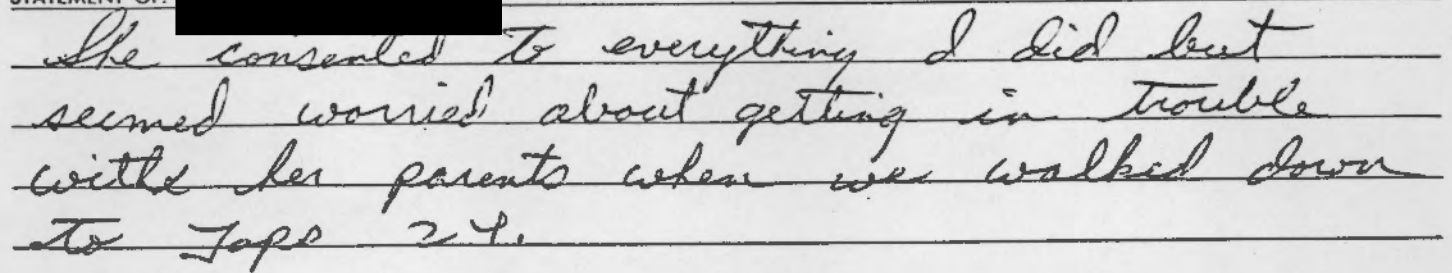 STATEMENT OF:
She consented to everything I did but
seemed worried about getting in trouble
with her parents when we walked down
to Taps 24.